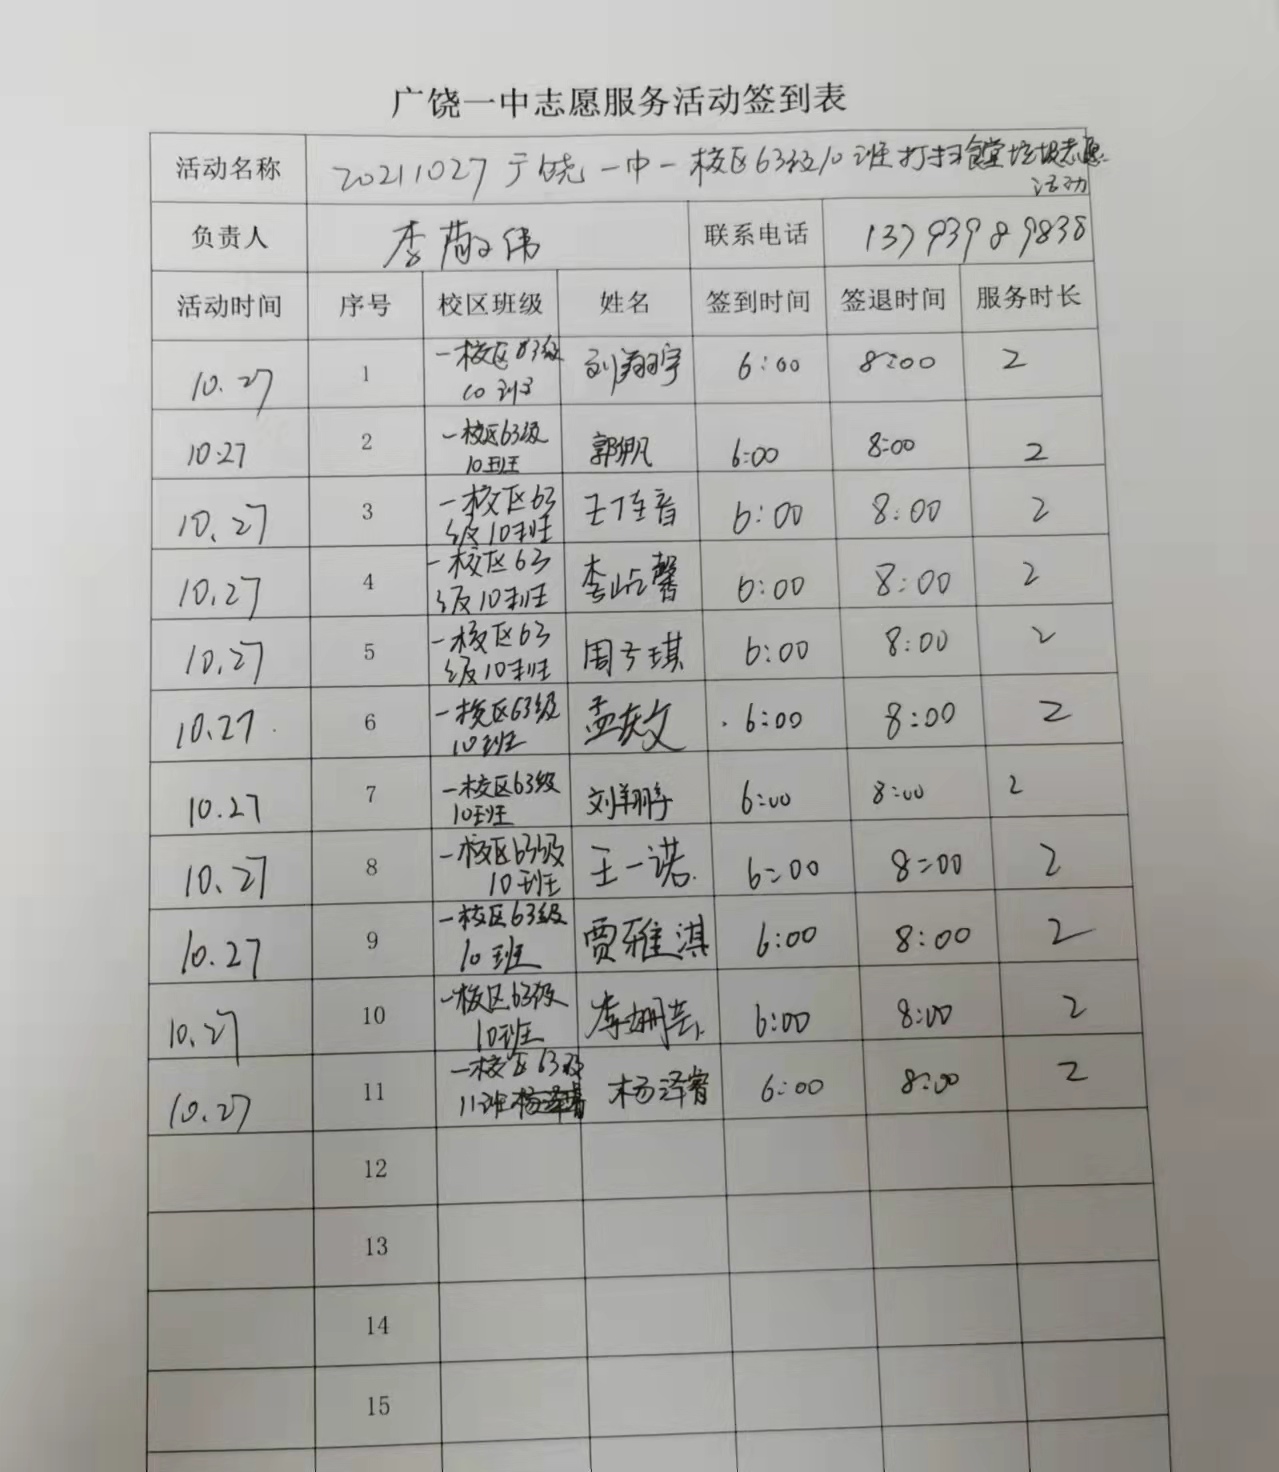 广饶一中志愿服务活动签到表
活动名称 20211027广饶一中一校区63级10班打扫食堂垃圾志愿
活动
负责人 李敬伟 联系电话 13793989838
活动时间 序号 校区班级 姓名 签到时间 签退时间 服务时长
10.27 1 一校区63级 刘翔宇 6:00 8:00 2
10班
10.27 2 一校区63级 6:00 8:00 2
10班
10.27 3 一校区63 王佳音 6:00 8:00 2
级10班
10.27 4 一校区63 李屹馨 6:00 8:00 2
级10班
10.27 5 一校区63 周于琪 6:00 8:00 2
级10班
10.27 6 一校区63级 孟庆文 6:00 8:00 2
10班
10.27 7 一校区63级 刘翔宇 6:00 8:00 2
10班
10.27 8 一校区63级 王一诺 6:00 8:00 2
10班
10.27 9 一校区63级 贾雅淇 6:00 8:00 2
10班
10.27 10 一校区63级 李姗芸 6:00 8:00 2
10班
10.27 11 一校区63级 杨泽睿 6:00 8:00 2
11班
12
13
14
15